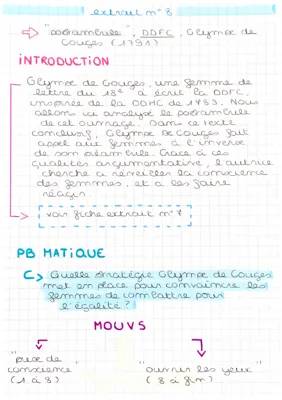 extrait n° 8
"postambule", DDFC, Olympe de
Gouges (1791)
INTRODUCTION
Olympe de Gouges, une femme de
lettre du 18e a écrit la DDFC,
inspirée de la DDHC de 1789. Nous
allons ici analysé le postambule
de cet ouvrage. Dans ce texte
conclusif, Olympe de Gouges fait
appel aux femmes à l'inverse
de son préambule. Grâce à ces
qualités argumentative, l'autrice
cherche à réveiller la conscience
des femmes, et à les faire
réagir.
voir fiche extrait n° 7
PB MATIQUE
Quelle stratégie Olympe de Gouges
met en place pour convaincre les
femmes de combattre pour
l'égalité ?
MOUVS
"prise de
conscience"
(1 à 8)
"ouvrir les yeux"
(8 à fin)